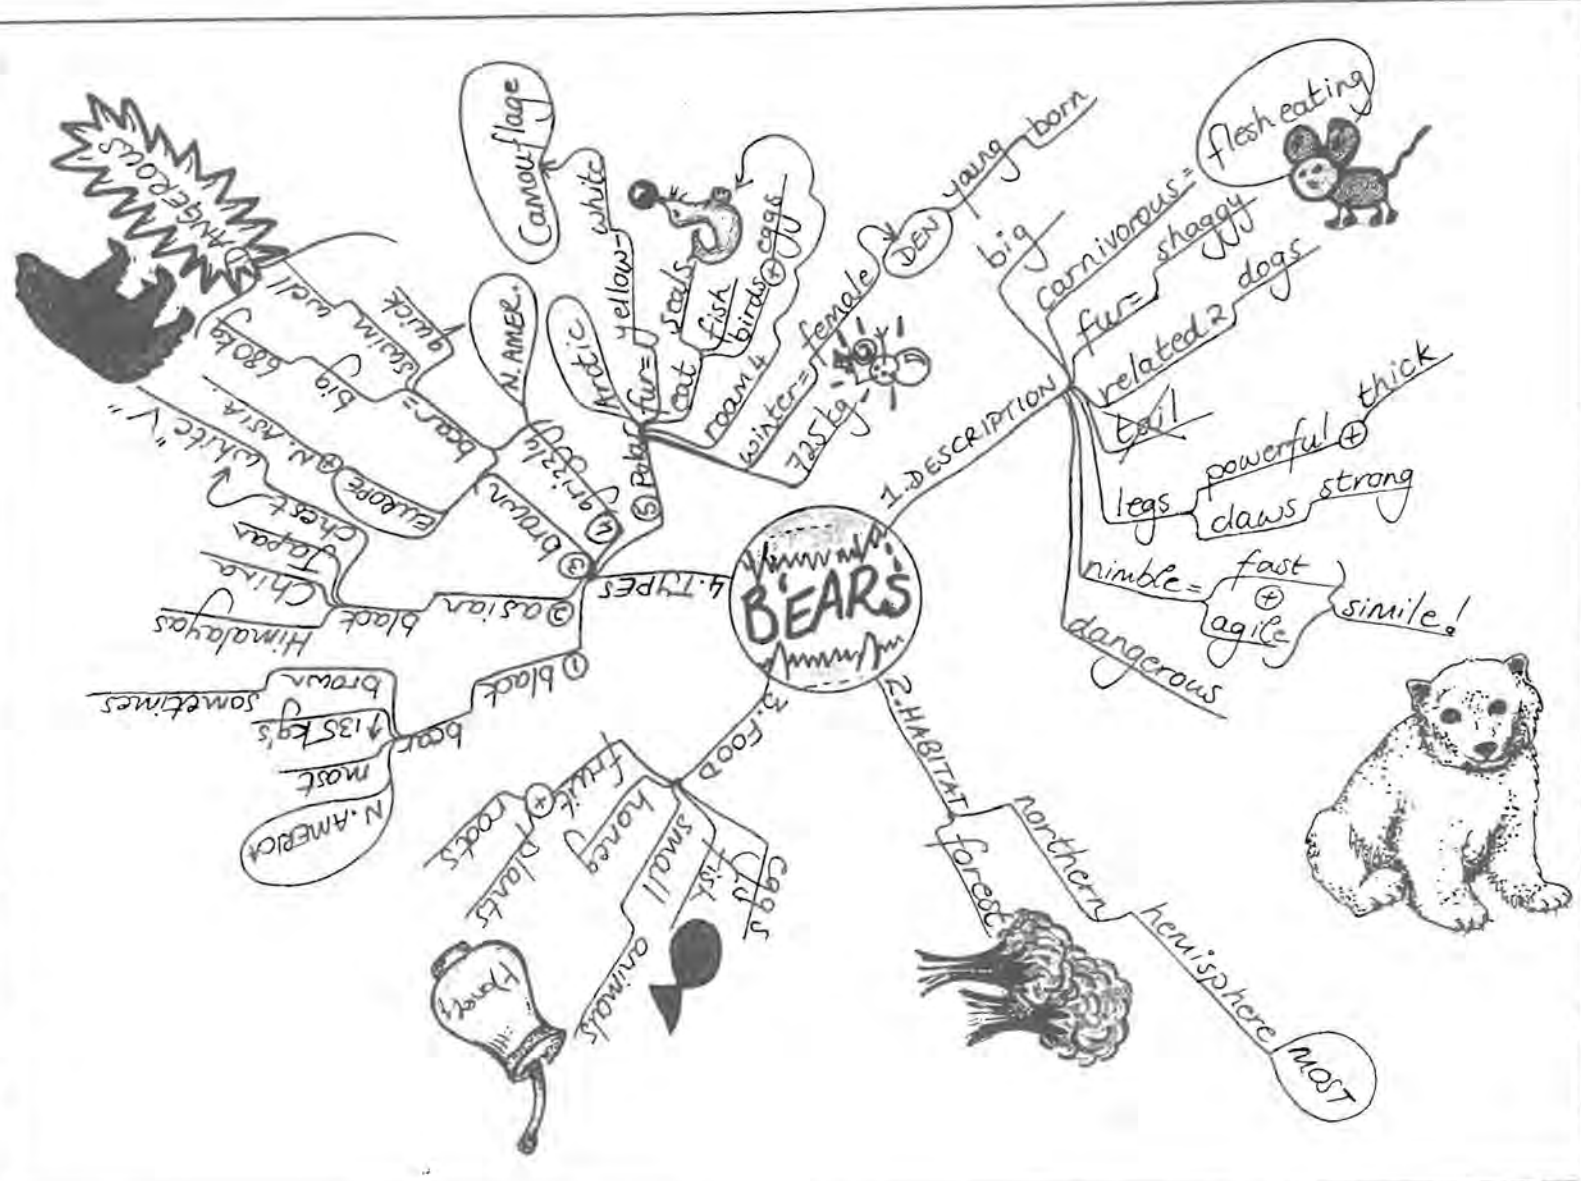 BEARS
1. DESCRIPTION
big
carnivorous =
flesh eating
fur = shaggy
related 2 dogs
tail
legs
powerful +
thick
claws strong
nimble =
fast
+
agile
simile!
dangerous
2. HABITAT
northern
hemisphere
MOST
forest
3. FOOD
eggs
fish
small
animals
honey
fruit
+
plants
roots
Honey
4. TYPES
① black
bear
brown
sometimes
↑135 kg's
most
N. AMERICA
② asian
black
chest
white "V"
Japan
China
Himalayas
③ brown
EUROPE
+ N. ASIA
bear =
big
680 kg
swim
well
quick
DANGEROUS
④ grizzly
N. AMER.
⑤ Polar
Arctic
fur =
yellow-
white
Camouflage
eat
seals
fish
birds +
eggs
roam 4
winter =
female
DEN
young
born
725 kg